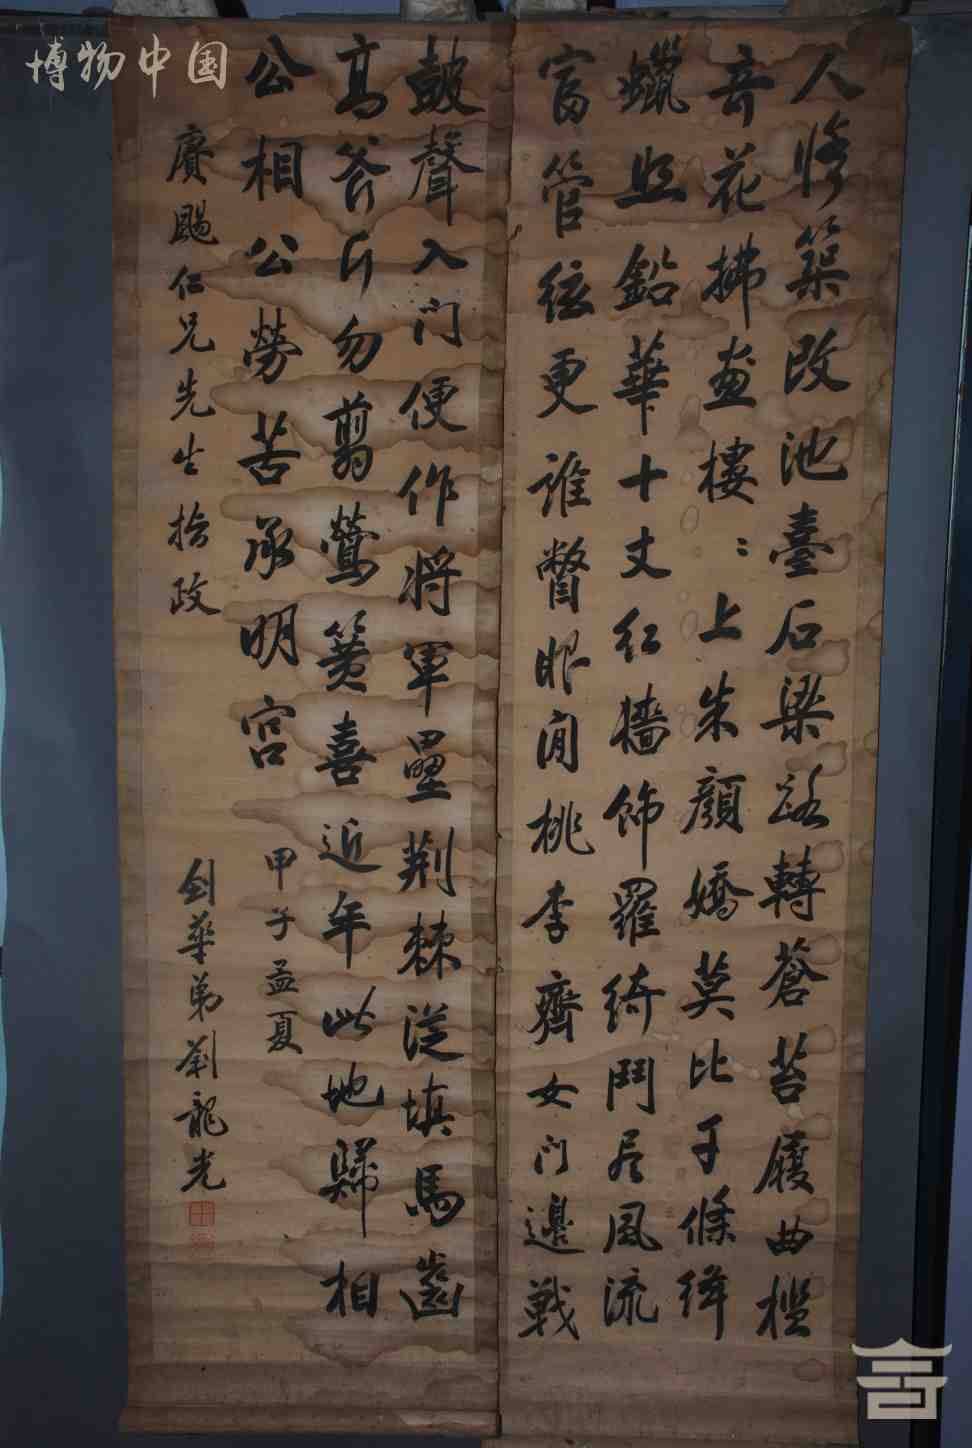 博物中国
人修築改池臺石梁路轉蒼苔廢曲檻
奇花拂畫樓:上朱顏嬌莫比千條絳
蠟照鉛華十丈紅牆飾羅綺鬥尽風流
富管絃更誰瞥眼閒桃李齊女門邊戰
鼓聲入門便作將軍壘荆棘從填馬齒
高斧斤勿剪鶯簧喜近年此地歸相
公相公勞苦承明宮
甲子孟夏
賡颺仁兄先生指政
劍華弟劉龍光